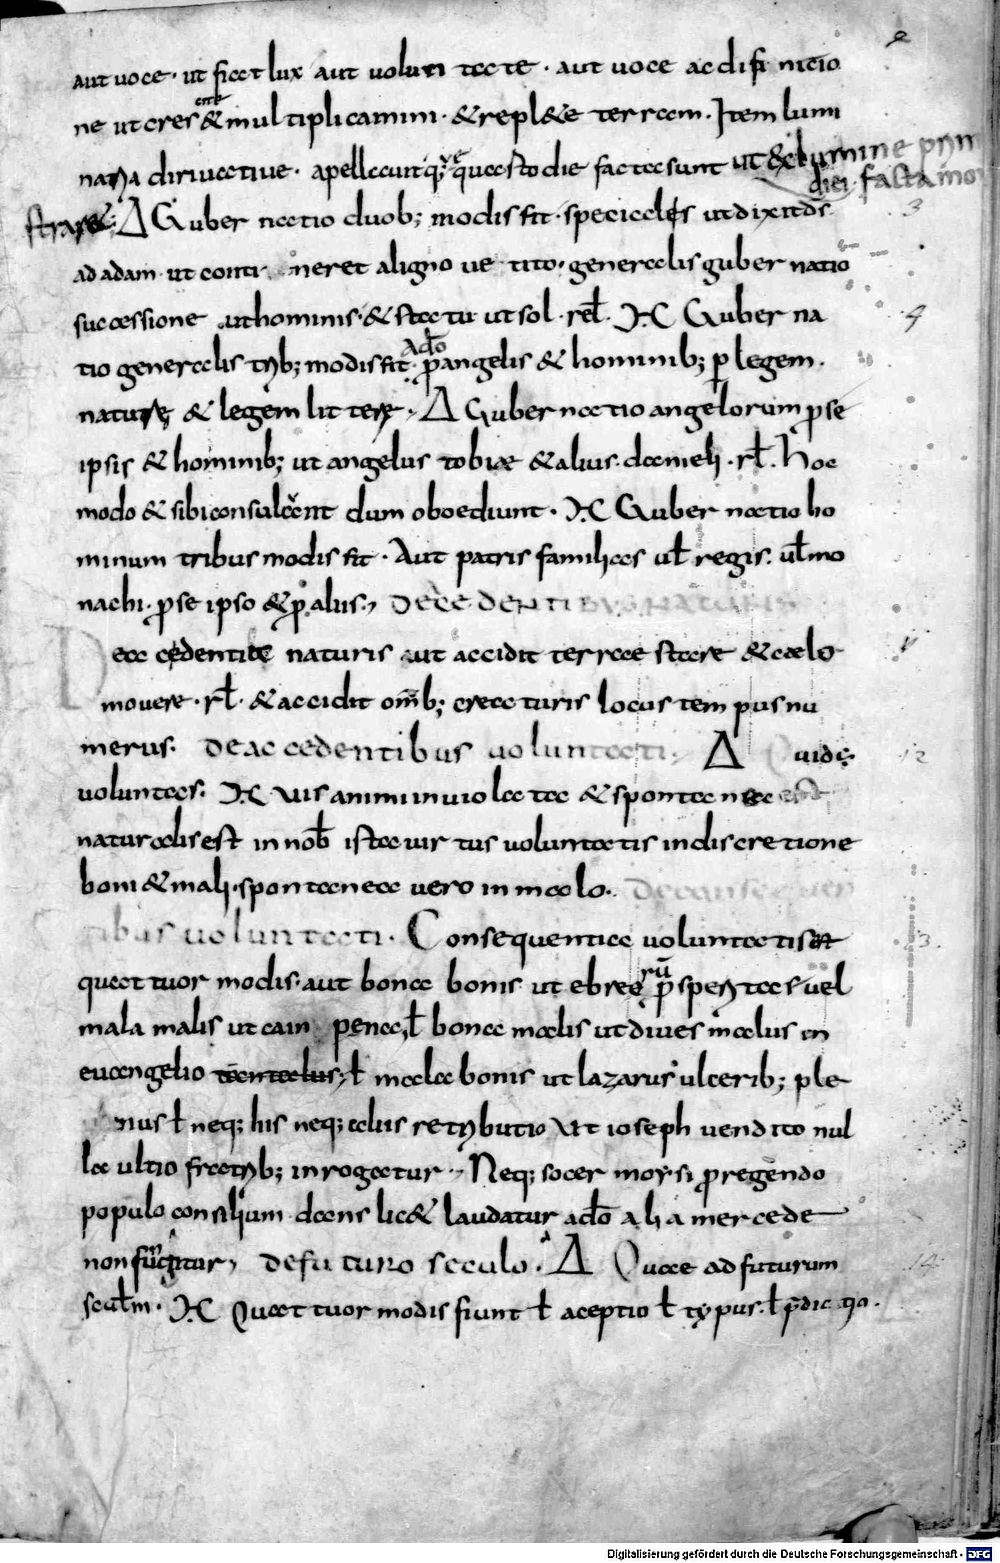 aut uoce · ut fiat lux aut voluntate · aut uoce ac difinitio
ne ut cres cite & multiplicamini · & repl&e terram · Item lumi
naria diriuatiue · apellauitq; que sto die facta sunt ut ex lumine prin
diei facta mo
strare Δ Guber natio duob; modis fit · speciales ut dixit ds̄
ad adam ut conti neret a ligno ue tito · generalis guber natio
successione ut hominis · & statu ut sol · rel̄ · ΜC Guber na
tio generalis trib; modis fit · ado p̄ angelis & hominib; p legem ·
nature & legem littere · Δ Gubernatio angelorum pse
ipsis & hominib; ut angelus tobiae & alius danieli · rl̄ · Hoc
modo & sibi consulant dum oboediunt · ΜC Gubernatio ho
minum tribus modis fit · Aut patris familias ul̄ regis · ul̄ mo
nachi · pse ipso & p̄ aliis, DE ACCEDENTIBUS NATURIS
De accedentia naturis ut accidit terrae stare & caelo
mouere · rl̄ · & accidit om̄b; creaturis locus tempus nu
merus · De accedentibus uoluntati · Δ Quid ę
uoluntas · ΜC uis animi inuiolata & spontanea est
naturalis est in nob̄ ista uirtus uoluntatis in discretione
boni & mali · spontanea uero in malo · De consequen
tibus uoluntati · Consequentia uoluntatis est
quattuor modis · aut bona bonis ut ebreorū prosperitas uel
mala malis ut cain pena ł bona malis ut diues malus in
euangelio ł mala bonis ut lazarus ulcerib; ple
nus ł neq; his neq; aliis retributio ut ioseph vendito nul
la ultio fratrib; inrogatur · Neq; socer moysi p regendo
populo consilium dans lic& laudatur a dō alia mercede
non fungitur, de futuro seculo · Δ Quae ad futurum
sclm̄ · ΜC Quattuor modis fiunt ł aceptio ł typus · ł p̄dictio ·